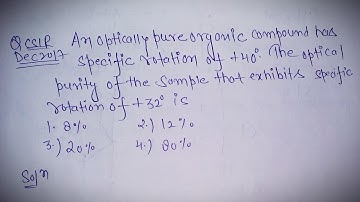 Q CSIR An optically pure organic compound has
Dec 2017 specific rotation of +40°. The optical
purity of the sample that exhibits specific
rotation of +32° is
1. 8% 2.) 12%
3.) 20% 4.) 80%
Soln